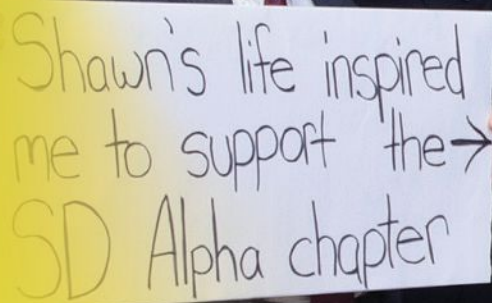 Shawn's life inspired
me to support the →
SD Alpha chapter